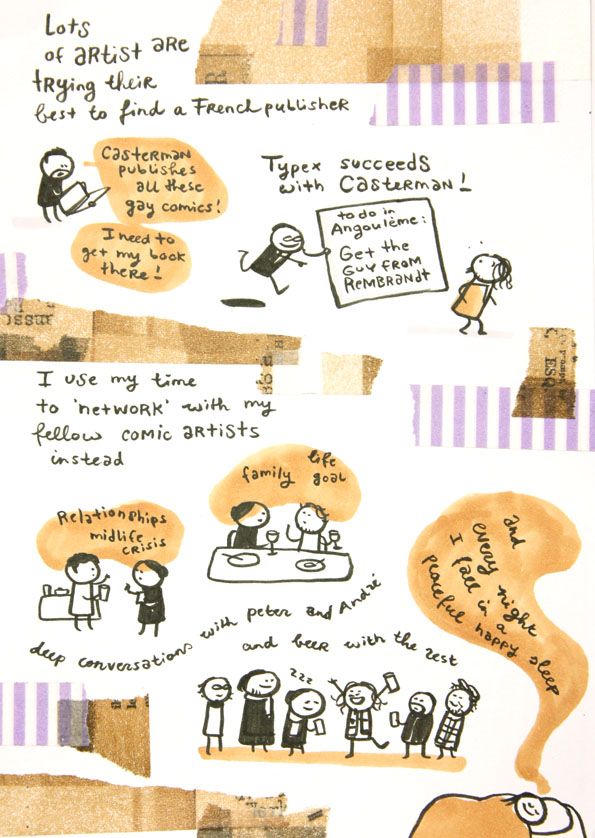 Lots
of artist are
trying their
best to find a French publisher
Casterman
publishes
all these
gay comics!
I need to
get my book
there!
Typex succeeds
with Casterman!
to do in
Angoulème:
Get the
guy from
Rembrandt
I use my time
to 'network' with my
fellow comic artists
instead
Relationships
midlife
crisis
family life
goal
deep conversations with peter and André
and beer with the rest
zzz
and
every night
I fall in a
peaceful happy sleep
ESQ